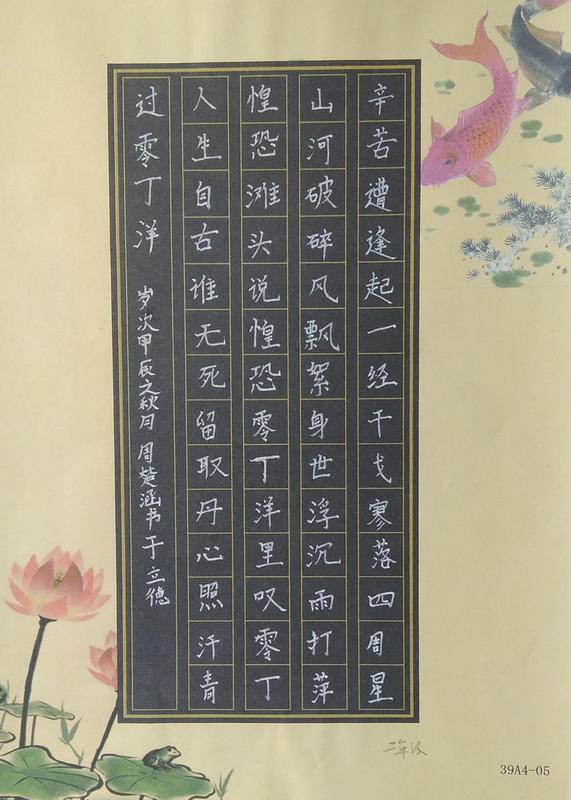 辛苦遭逢起一经干戈寥落四周星
山河破碎风飘絮身世浮沉雨打萍
惶恐滩头说惶恐零丁洋里叹零丁
人生自古谁无死留取丹心照汗青
过零丁洋 岁次甲辰之秋月 周楚涵书于立德
39A4-05